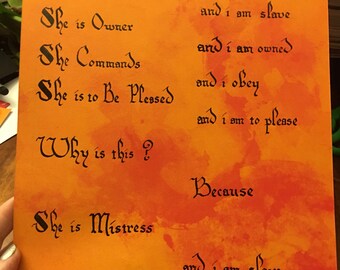 She is Owner
and i am slave
She Commands
and i am owned
She is to Be Pleased
and i obey
and i am to please
Why is this ?
Because
She is Mistress
and i am slave